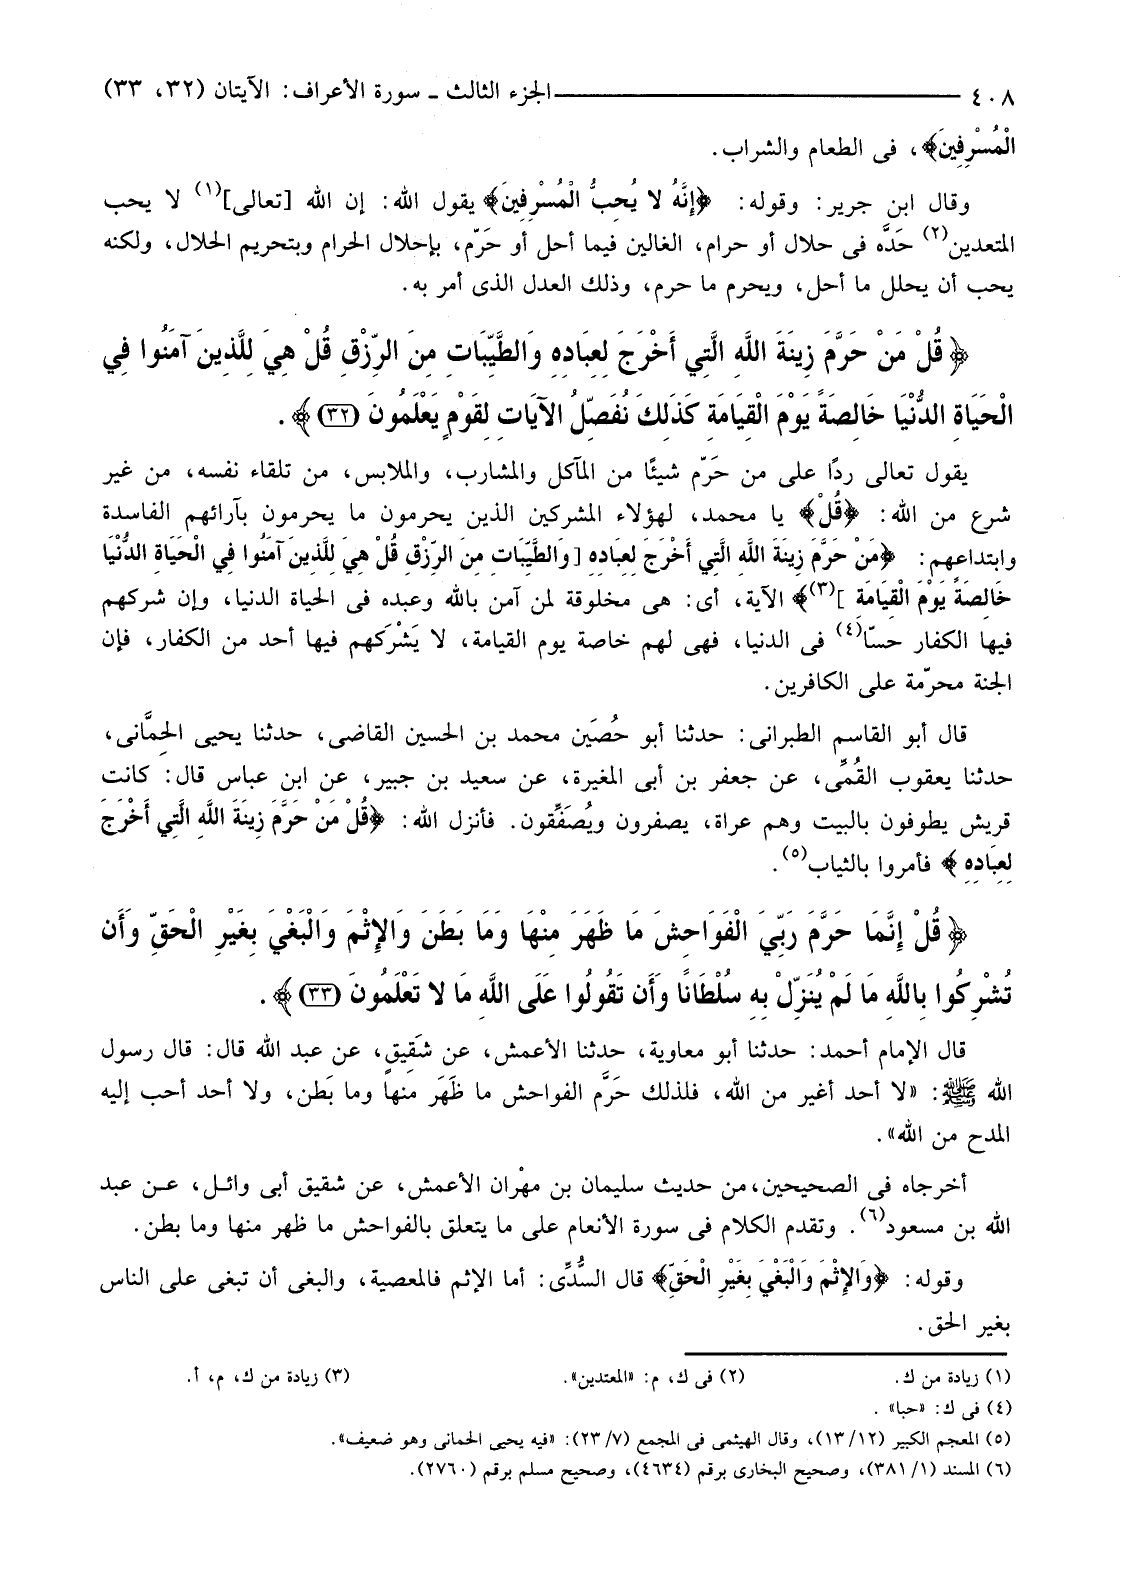 ٤٠٨ الجزء الثالث ـ سورة الأعراف: الآيتان (٣٢، ٣٣)
الْمُسْرِفِينَ﴾، فى الطعام والشراب.
وقال ابن جرير: وقوله: ﴿إِنَّهُ لا يُحِبُّ الْمُسْرِفِينَ﴾ يقول الله: إن الله [تعالى](١) لا يحب
المتعدين(٢) حَدَّه فى حلال أو حرام، الغالين فيما أحل أو حَرّم، بإحلال الحرام وبتحريم الحلال، ولكنه
يحب أن يحلل ما أحل، ويحرم ما حرم، وذلك العدل الذى أمر به.
﴿قُلْ مَنْ حَرَّمَ زِينَةَ اللَّهِ الَّتِي أَخْرَجَ لِعِبَادِهِ وَالطَّيِّبَاتِ مِنَ الرِّزْقِ قُلْ هِيَ لِلَّذِينَ آمَنُوا فِي
الْحَيَاةِ الدُّنْيَا خَالِصَةً يَوْمَ الْقِيَامَةِ كَذَلِكَ نُفَصِّلُ الآيَاتِ لِقَوْمٍ يَعْلَمُونَ (٣٢)﴾.
يقول تعالى ردًا على من حَرّم شيئًا من المآكل والمشارب، والملابس، من تلقاء نفسه، من غير
شرع من الله: ﴿قُلْ﴾ يا محمد، لهؤلاء المشركين الذين يحرمون ما يحرمون بآرائهم الفاسدة
وابتداعهم: ﴿مَنْ حَرَّمَ زِينَةَ اللَّهِ الَّتِي أَخْرَجَ لِعِبَادِهِ [وَالطَّيِّبَاتِ مِنَ الرِّزْقِ قُلْ هِيَ لِلَّذِينَ آمَنُوا فِي الْحَيَاةِ الدُّنْيَا
خَالِصَةً يَوْمَ الْقِيَامَةِ ](٣)﴾ الآية، أى: هى مخلوقة لمن آمن بالله وعبده فى الحياة الدنيا، وإن شركهم
فيها الكفار حسّا(٤) فى الدنيا، فهى لهم خاصة يوم القيامة، لا يَشْرَكهم فيها أحد من الكفار، فإن
الجنة محرّمة على الكافرين.
قال أبو القاسم الطبرانى: حدثنا أبو حُصَين محمد بن الحسين القاضى، حدثنا يحيى الحِمَّانى،
حدثنا يعقوب القُمِّى، عن جعفر بن أبى المغيرة، عن سعيد بن جبير، عن ابن عباس قال: كانت
قريش يطوفون بالبيت وهم عراة، يصفرون ويُصَفِّقون. فأنزل الله: ﴿قُلْ مَنْ حَرَّمَ زِينَةَ اللَّهِ الَّتِي أَخْرَجَ
لِعِبَادِهِ ﴾ فأمروا بالثياب(٥).
﴿قُلْ إِنَّمَا حَرَّمَ رَبِّيَ الْفَوَاحِشَ مَا ظَهَرَ مِنْهَا وَمَا بَطَنَ وَالإِثْمَ وَالْبَغْيَ بِغَيْرِ الْحَقِّ وَأَن
تُشْرِكُوا بِاللَّهِ مَا لَمْ يُنَزِّلْ بِهِ سُلْطَانًا وَأَن تَقُولُوا عَلَى اللَّهِ مَا لا تَعْلَمُونَ (٣٣)﴾.
قال الإمام أحمد: حدثنا أبو معاوية، حدثنا الأعمش، عن شَقِيقٍ، عن عبد الله قال: قال رسول
الله ﷺ: «لا أحد أغير من الله، فلذلك حَرَّم الفواحش ما ظَهَر منها وما بَطن، ولا أحد أحب إليه
المدح من الله».
أخرجاه فى الصحيحين، من حديث سليمان بن مهْران الأعمش، عن شقيق أبى وائل، عن عبد
الله بن مسعود(٦). وتقدم الكلام فى سورة الأنعام على ما يتعلق بالفواحش ما ظهر منها وما بطن.
وقوله: ﴿وَالإِثْمَ وَالْبَغْيَ بِغَيْرِ الْحَقِّ﴾ قال السُّدِّى: أما الإثم فالمعصية، والبغى أن تبغى على الناس
بغير الحق.
(١) زيادة من ك. (٢) فى ك، م: «المعتدين». (٣) زيادة من ك، م، أ.
(٤) فى ك: «حبا» .
(٥) المعجم الكبير (١٣/١٢)، وقال الهيثمى فى المجمع (٢٣/٧): «فيه يحيى الحمانى وهو ضعيف».
(٦) المسند (٣٨١/١)، وصحيح البخارى برقم (٤٦٣٤)، وصحيح مسلم برقم (٢٧٦٠).